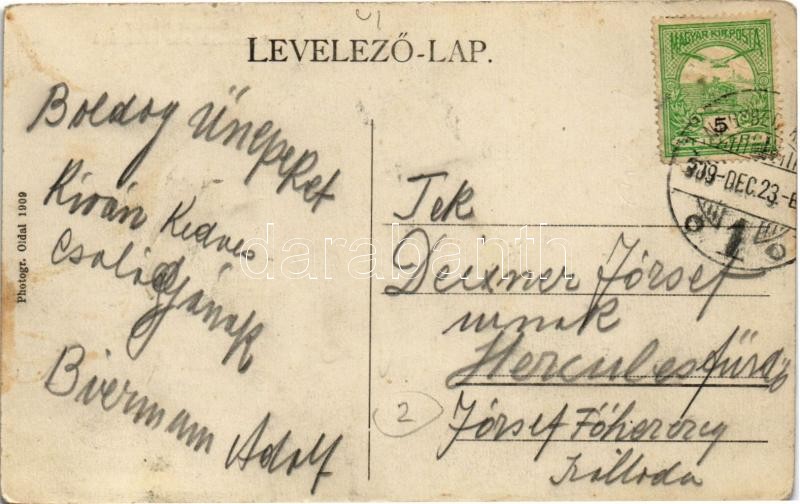 LEVELEZŐ-LAP.
MAGYAR KIR. POSTA
5
909-DEC.23.-E
1
Boldog Ünepeket
Kiván Kedves
Családjának
Bierman Adolf
Tek
Deixner József
urnak
Herculesfürdő
József Főherczeg
Szálloda
2
Photogr. Oldal 1909
darabanth